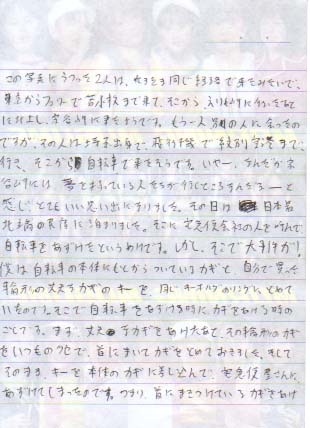 この写真にうつった2人は、たまたま同じ経路で来たみたいで、
東京からフェリーで苫小牧まで来て、そこから えりも
に北上し、宗谷岬に来たそうです。もう一人 別の人に会ったの
ですが、その人は埼玉出身で、飛行機で 空港まで
行き、そこから自転車で来たそうです。いやー、そんなが宗
谷岬には 夢を持っている人たちが行くところなんだなーと
感じとてもいい思い出になりました。その日は 日本最
北端の民宿に泊まりました。そこに宅急便会社の人を呼んで
自転車をあずけるというわけです。しかし、そこで大事件が!
僕は自転車の本体にもとからついているカギと、自分で買った
輪形の丈夫なカギのキーを、同じキーホルダのリングにとめて
いたのです。そこで自転車をあずける時に、カギをあける時の
ことです。まず、丈夫な方のカギをあけたあと、その輪形のカギ
をいつものクセで、首にまいてカギをとめておきました。そして
そのまま、キーを本体のカギに差し込んで、宅急便屋さんに
あずけてしまったのです。つまり、首にまきつけているカギをあけ